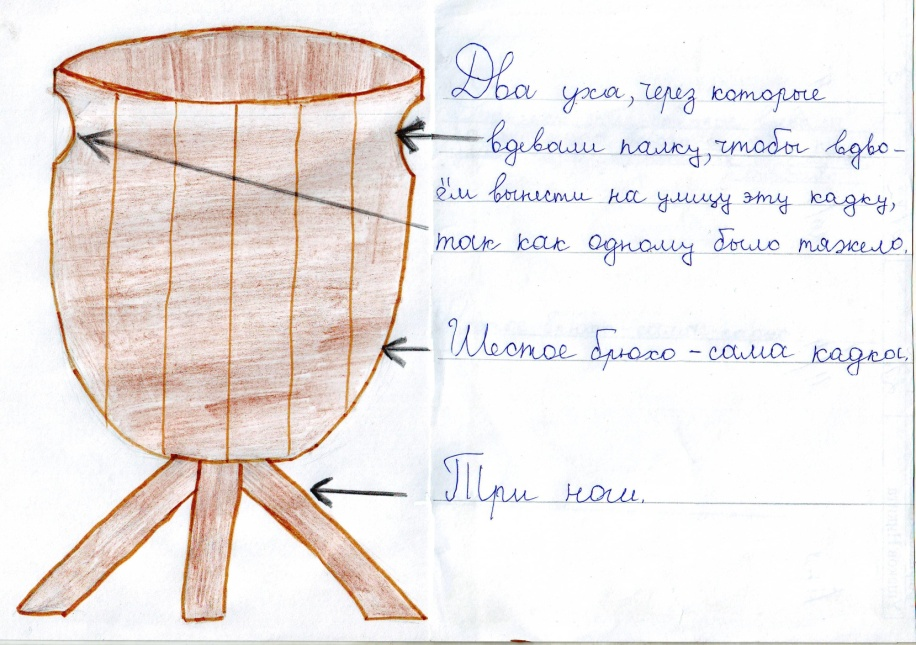 Два уха, через которые
вдевали палку, чтобы вдво-
ём вынести на улицу эту кадку,
так как одному было тяжело.
Шестое брюхо - сама кадка.
Три ноги.